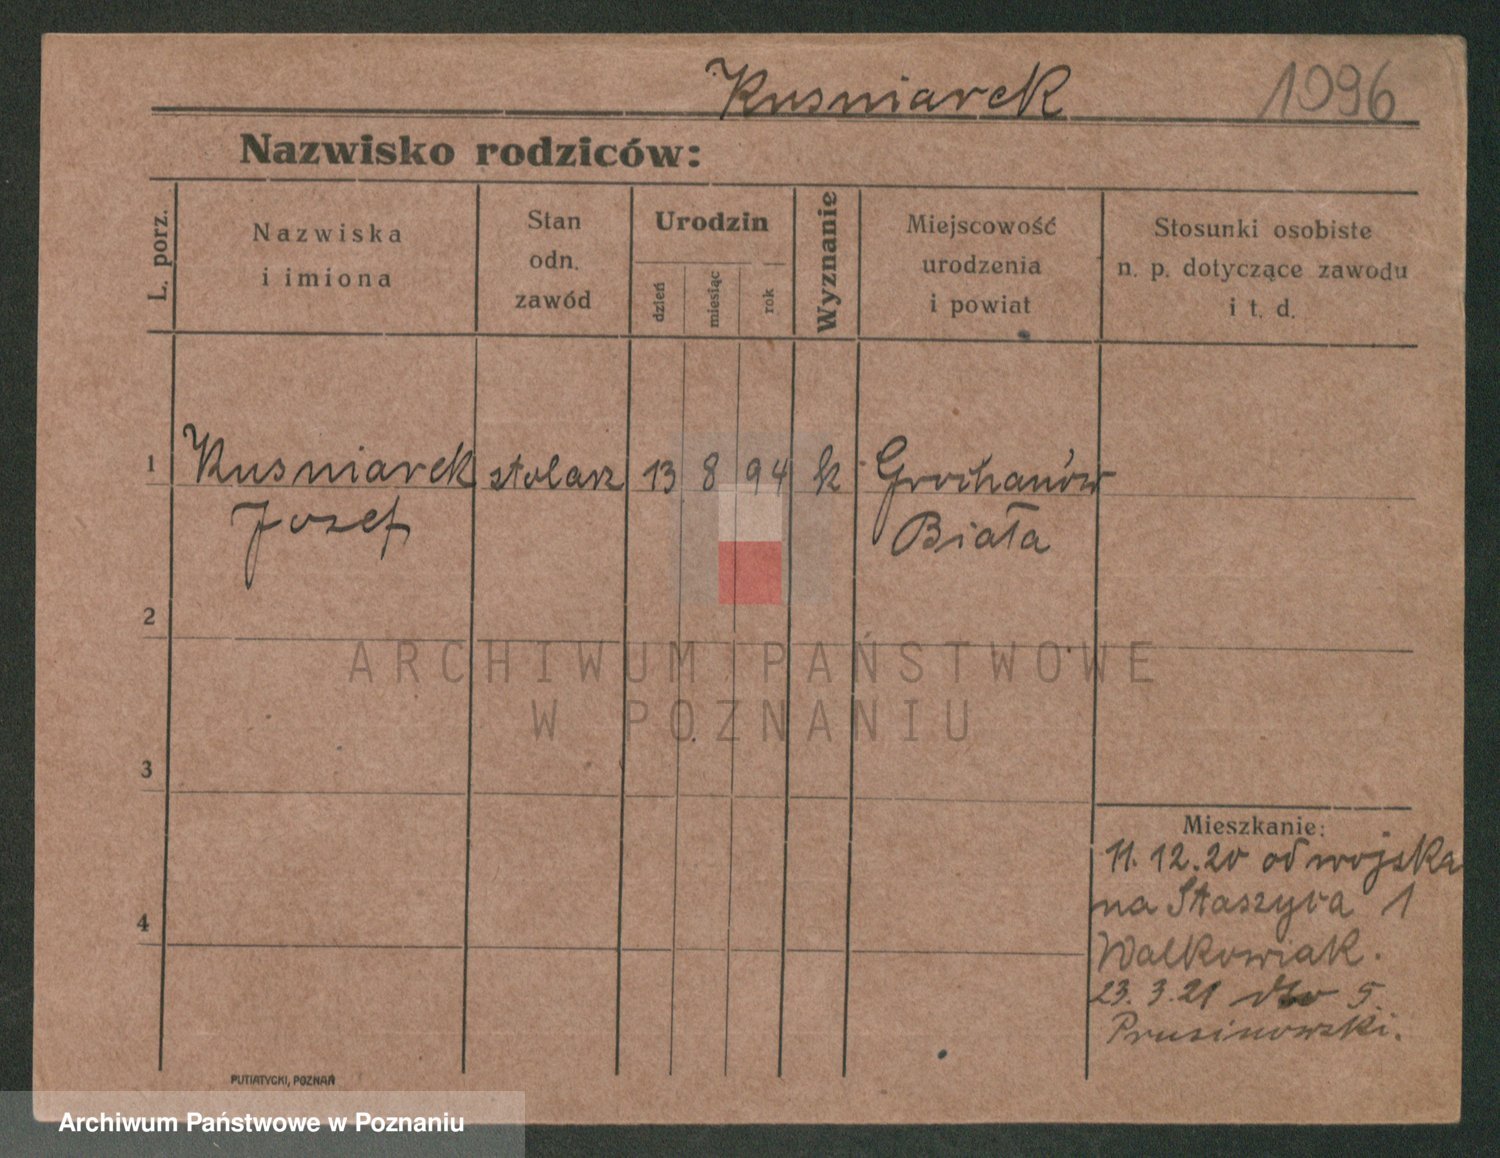 Kusniarek 1096
Nazwisko rodziców:
L. porz.
Nazwiska
i imiona
Stan
odn.
zawód
Urodzin
dzień
miesiąc
rok
Wyznanie
Miejscowość
urodzenia
i powiat
Stosunki osobiste
n. p. dotyczące zawodu
i t. d.
1 Kusniarek stolarz 13 8 94 k Grochanów
Jozef Biała
2
ARCHIWUM PAŃSTWOWE
W POZNANIU
3
Mieszkanie:
11. 12. 20 od wojska
na Staszyca 1
4
Walkowiak.
23. 3. 21 5.
Prusinowski.
PUTIATYCKI, POZNAŃ
Archiwum Państwowe w Poznaniu